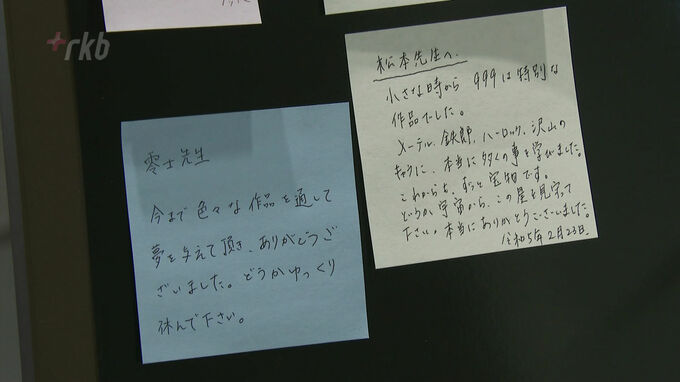 rkb
零士先生
今まで色々な作品を通して
夢を与えて頂き、ありがとうご
ざいました。どうかゆっくり
休んで下さい。
松本先生へ.
小さな時から 999は特別な
作品でした。
メーテル、鉄郎、ハーロック、沢山の
キャラに、本当に多くの事を学びました。
これからも、ずっと宝物です。
どうか宇宙から、この星を見守って
下さい。本当にありがとうございました。
令和5年2月23日.